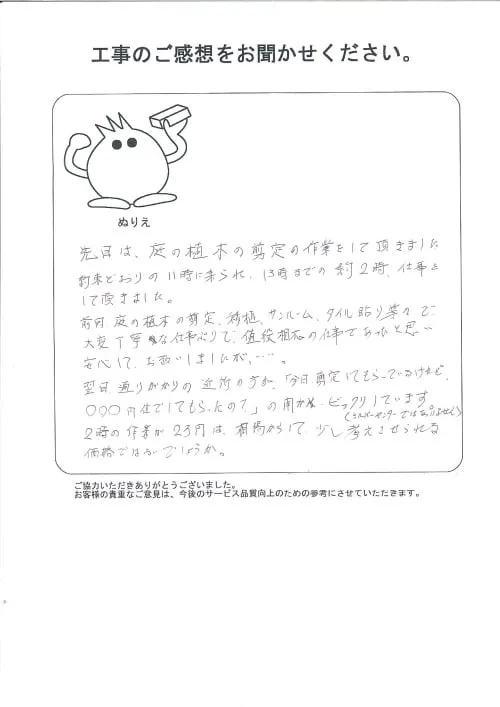 工事のご感想をお聞かせください。
ぬりえ
先日は、庭の植木の剪定の作業をして頂きました
約束どおりの11時に来られ、13時までの約2時、仕事を
して頂きました。
前回、庭の植木の剪定、移植、サンルーム、タイル貼り等々で、
大変丁寧な仕事ぶりで、値段相応の仕事であったと思い
安心して、お願いしましたが、…。
翌日、通りがかりの近所の方が、「今日剪定してもらっているけれど、
〇〇〇円位でしてもらったの?」の聞かれ ビックリしています
(シルバーセンターではありません)
2時の作業が23円は、相場からして、少し考えさせられる
価格ではないでしょうか。
ご協力いただきありがとうございました。
お客様の貴重なご意見は、今後のサービス品質向上のための参考にさせていただきます。